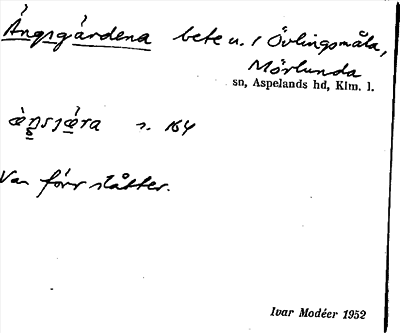 Ängsgärdena bete u. / Övlingsmåla,
Mörlunda
sn, Aspelands hd, Klm. l.
s. 164
Var förr slåtter.
Ivar Modéer 1952